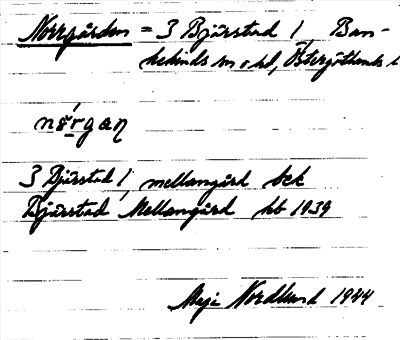 Norrgården = 3 Bjärstad 1, Ban-
hekinds sn o hd, Östergötlands l
nǿrgaɳ
3 Bjärstad 1, mellangård bek
Bjärstad Mellangård kb 1939
Maja Nordlund 1944